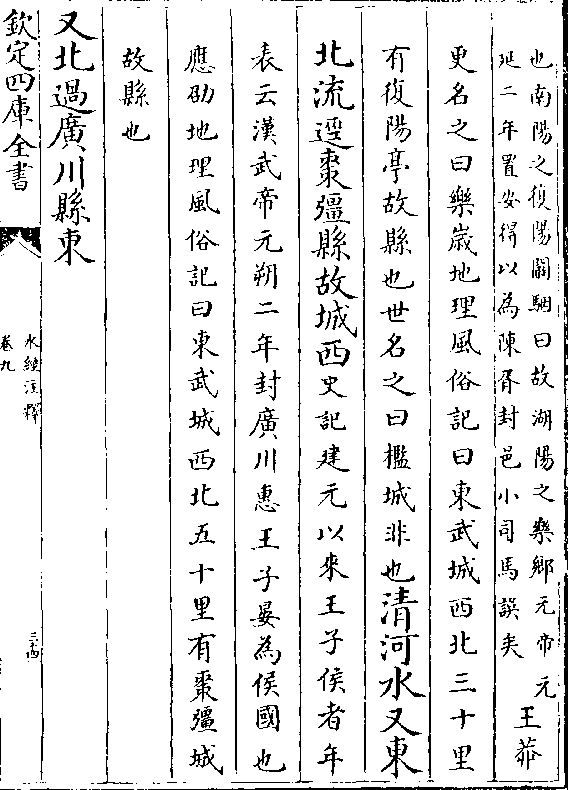 也南陽之復陽闞駰曰故湖陽之樂鄉元帝元
延二年置安得以為陳胥封邑小司馬誤矣
王莽
更名之曰樂歲地理風俗記曰東武城西北三十里
有復陽亭故縣也世名之曰檻城非也清河水又東
北流逕棗彊縣故城西史記建元以來王子侯者年
表云漢武帝元朔二年封廣川惠王子晏為侯國也
應劭地理風俗記曰東武城西北五十里有棗彊城
故縣也
又北過廣川縣東
欽定四庫全書
水經注釋
卷九
三十四